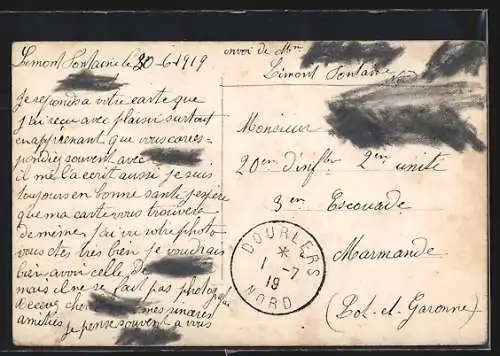 Limont Fontaine le 20-6-1919
Je reponds a votre carte que
j'ai reçu avec plaisir surtout
en apprenant que vous corres-
pondiez souvent avec
il me l'a ecrit aussi je suis
toujours en bonne santé j'espère
que ma carte vous trouvera
de même. J'ai vu votre photo
vous etes très bien je voudrais
bien avoir celle, de
mais il ne se fait pas photog
Recevez cher mes sincères
amitiés je pense souvent a vous
envoi de Mm
Limont Fontaine
Monsieur
20em d'inftie 2em unité
3em Escouade
Marmande
(Lot-et-Garonne)
DOURLERS
*
1 -7
19
NORD